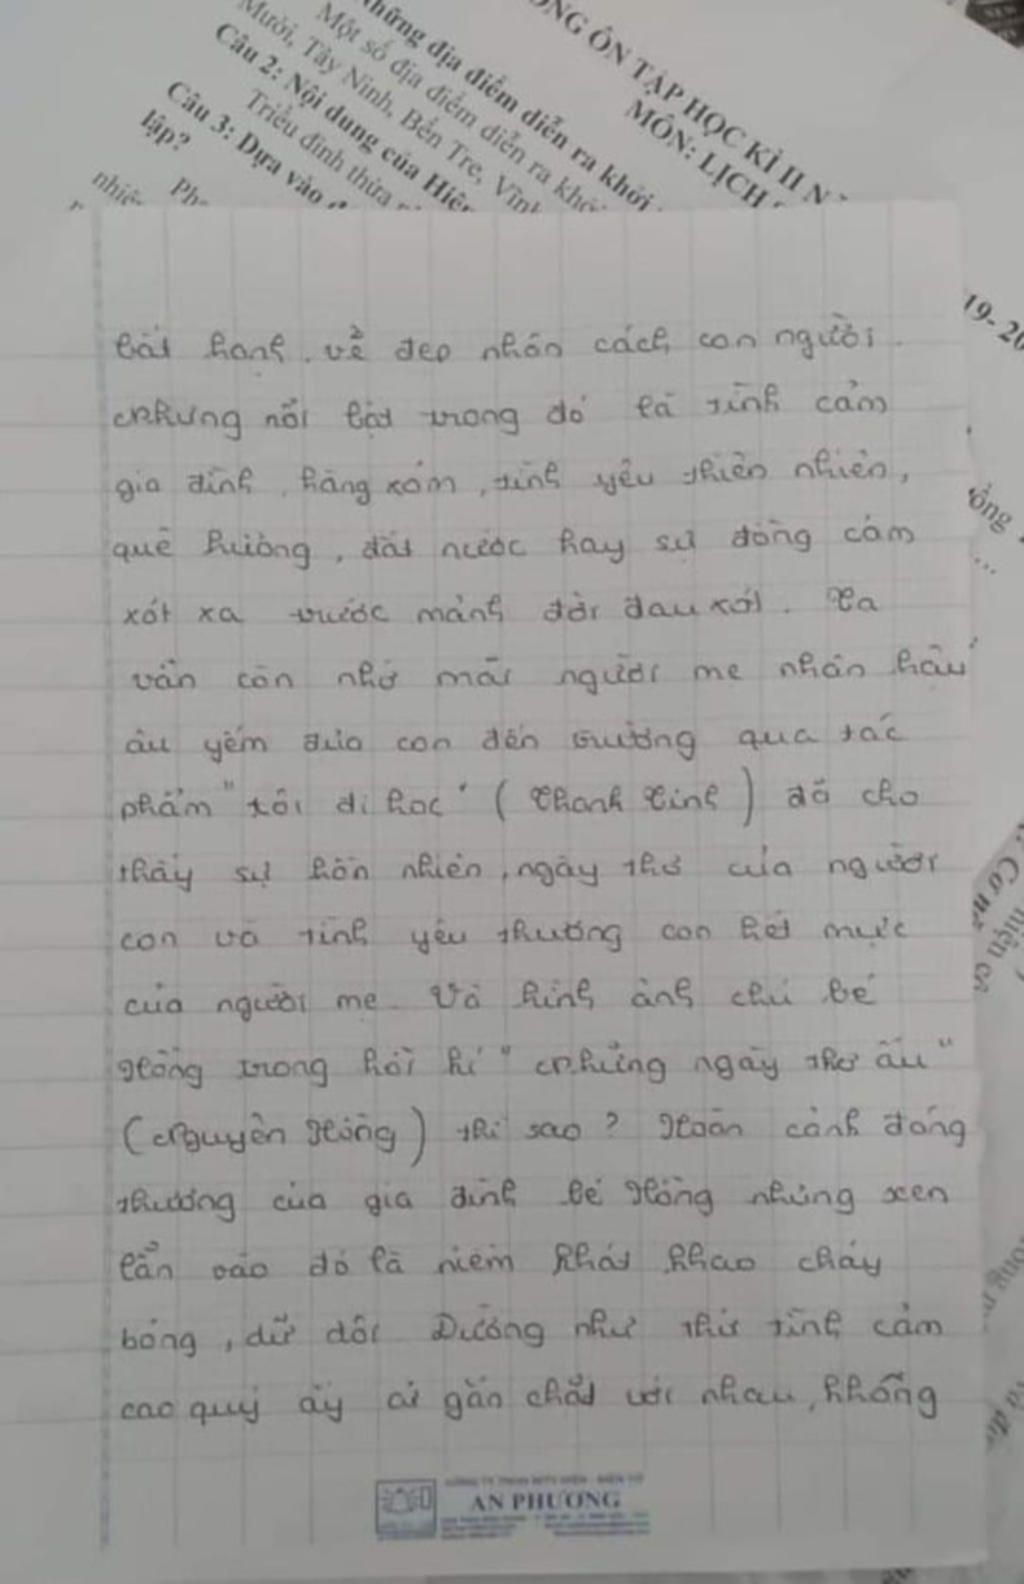 ƠNG ÔN TẬP HỌC KÌ II N
MÔN: LỊCH
hững địa điểm diễn ra khởi
Một số địa điểm diễn ra khởi
Mười, Tây Ninh, Bến Tre, Vĩnh
Câu 2: Nội dung của Hiệ
Triều đình thừa
Câu 3: Dựa vào
lập?
19-20
bất hạnh, vẻ đẹp nhân cách con người.
Nhưng nổi bật trong đó là tình cảm
gia đình, hàng xóm, tình yêu thiên nhiên,
quê hương, đất nước hay sự đồng cảm
xót xa trước mảnh đời đau xót. Ta
vẫn còn nhớ mãi người mẹ nhân hậu
âu yếm đưa con đến trường qua tác
phẩm "tôi đi học" (Thanh Tịnh) đã cho
thấy sự hồn nhiên, ngây thơ của người
con và tình yêu thương con hết mực
của người mẹ. Và hình ảnh chú bé
Hồng trong hồi kí "Những ngày thơ ấu"
(Nguyên Hồng) thì sao? Hoàn cảnh đáng
thương của gia đình bé Hồng nhưng xen
lẫn vào đó là niềm khát khao cháy
bỏng, dữ dội. Dường như thứ tình cảm
cao quý ấy cứ gắn chặt với nhau, không
AN PHƯƠNG